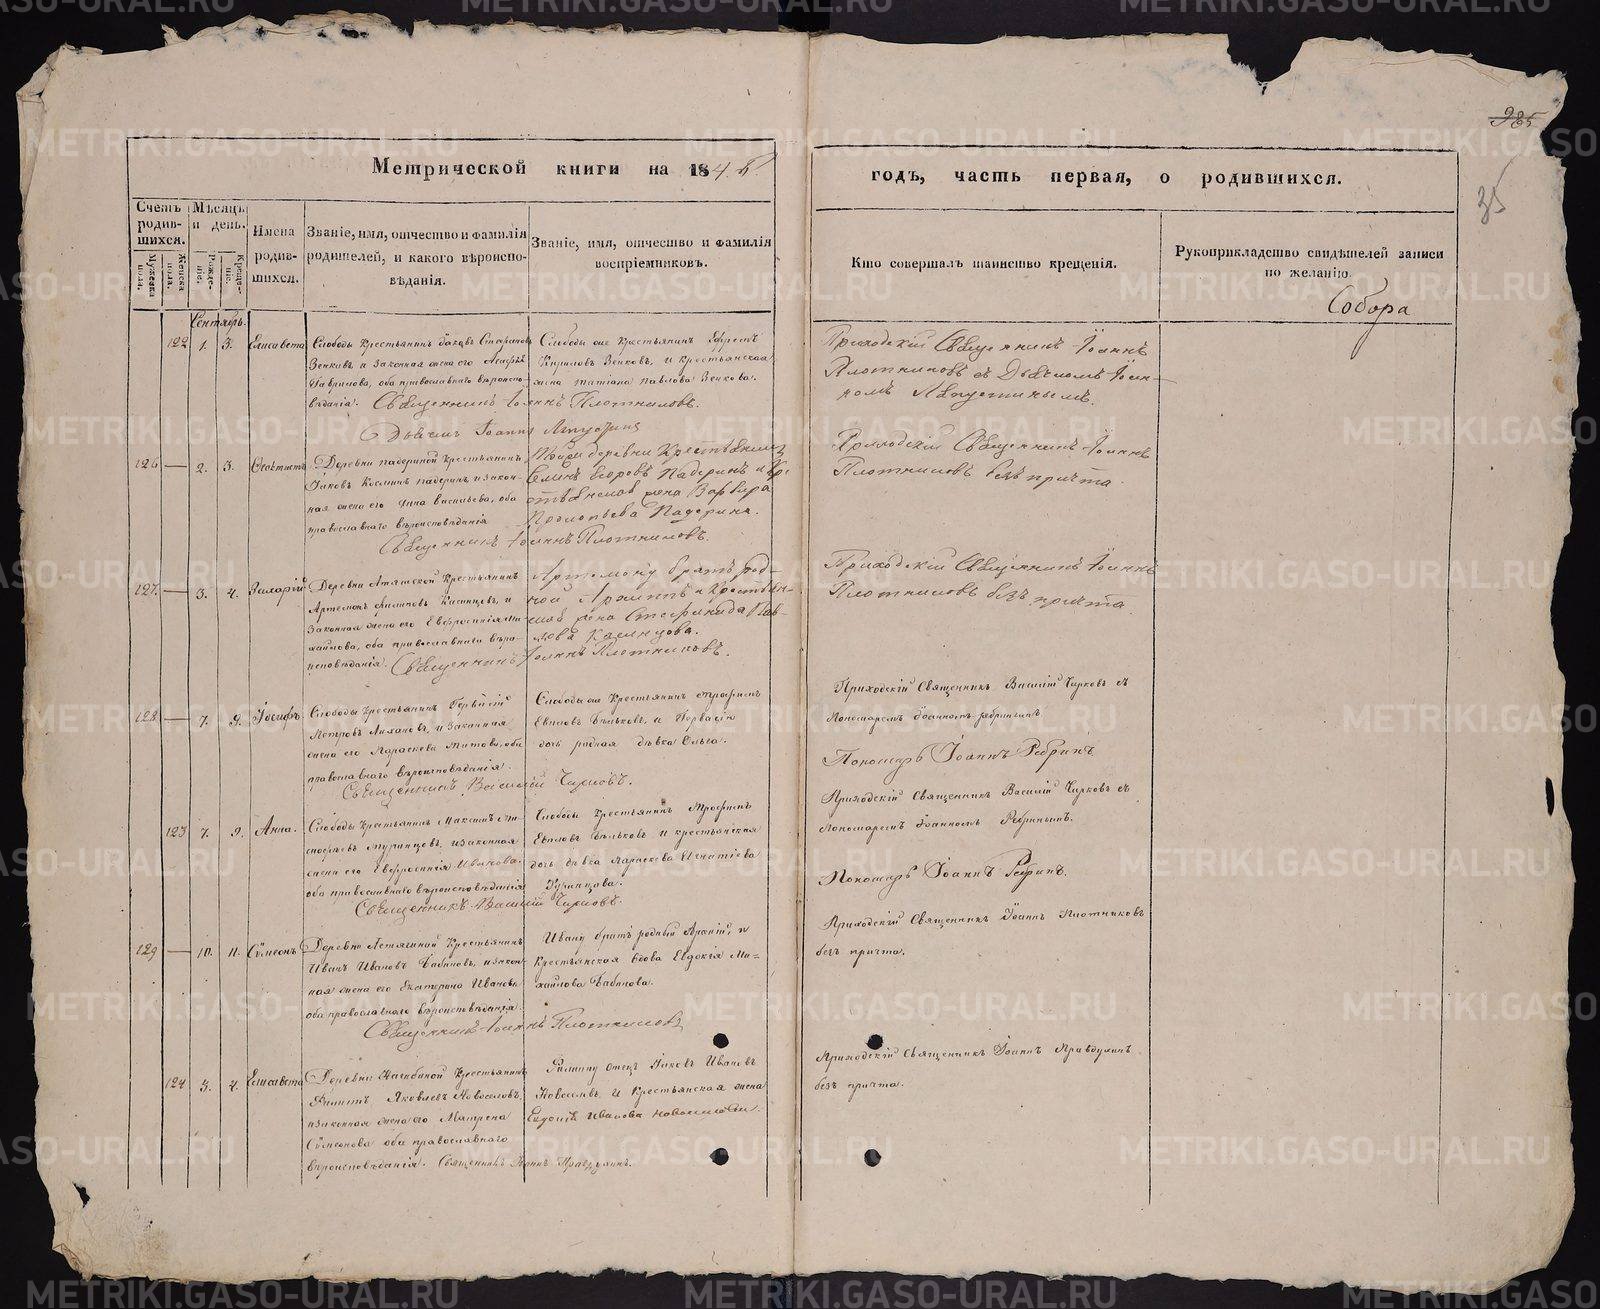 985
35
Метрической книги на 184
годъ, часть первая, о родившихся.
Счетъ родившихся.
Мужеска пола.
Женска пола.
Мѣсяцъ и день.
Рожденіе.
Крещеніе.
Имена родившихся.
Званіе, имя, отчество и фамилія родителей, и какого вѣроисповѣданія.
Званіе, имя, отчество и фамилія воспріемниковъ.
Кто совершалъ таинство крещенія.
Рукоприкладство свидѣтелей записи по желанію.
Собора
Сентябрь.
122 1. 3. Елисавета
Слободы Крестьянинъ
Зенковъ и законная жена его
Гаврилова, оба православнаго вѣроиспо-
вѣданія. Священникъ Іоаннъ Плотниковъ.
Слободы крестьянинъ Ефремъ
Кириловъ Зенковъ, и крестьянская
жена Татіана Павлова Зенкова.
Приходскій Священникъ Іоаннъ
Плотниковъ съ Дьячкомъ Іоан-
номъ
126 — 2. 3. Ѳеоктистъ
Деревни Падериной Крестьянинъ
Іаковъ Козминъ Падеринъ, и закон-
ная жена его Анна Васильева, оба
православнаго вѣроисповѣданія
Священникъ Іоаннъ Плотниковъ.
Тойже деревни Крестьянинъ
Егоровъ Падеринъ и Кре-
стьянская жена Варвара
Прокопьева Падерина.
Приходскій Священникъ Іоаннъ
Плотниковъ безъ причта.
127. — 3. 4. Иларій
Деревни Крестьянинъ
Артемонъ Филиповъ Казанцевъ, и
законная жена его Евфросинія Ми-
хайлова, оба православнаго вѣро-
исповѣданія. Священникъ Іоаннъ Плотниковъ.
Артемону братъ род-
ной и Крестьян-
ская жена Стефанида Пав-
лова Казанцова.
Приходскій Священникъ Іоаннъ
Плотниковъ безъ причта
128 — 7. 9. Іосифъ
Слободы Крестьянинъ Гервасій
Петровъ и законная
жена его Параскева Титова, оба
православнаго вѣроисповѣданія.
Священникъ Василій Чирковъ.
Слободы Крестьянинъ Трофимъ
Бѣльковъ, и Гервасія
дочь родная дѣвка Ольга.
Приходскій Священникъ Василій Чирковъ съ
Пономаремъ Іоанномъ Ребринымъ
Пономарь Іоаннъ Ребринъ
123 7. 9. Анна.
Слободы Крестьянинъ Максимъ
и законная
жена его Евфросинія Иванова.
оба православнаго вѣроисповѣданія
Священникъ Василій Чирковъ.
Слободы Крестьянинъ Трофимъ
Бѣльковъ и крестьянская
дочь дѣвка Параскева Игнатіева
Приходскій Священникъ Василій Чирковъ съ
Пономаремъ Іоанномъ Ребринымъ.
Пономарь Іоаннъ Ребринъ.
129 — 10. 11. Сѵмеонъ
Деревни Крестьянинъ
Иванъ Ивановъ Бабиновъ, и закон-
ная жена его Екатерина Иванова
оба православнаго вѣроисповѣданія.
Священникъ Іоаннъ Плотниковъ
Ивану братъ родный и
Крестьянская вдова Евдокія Ми-
хайлова Бабинова.
Приходскій Священникъ Іоаннъ Плотниковъ
безъ причта.
124 3. 4. Елисавета
Деревни Крестьянинъ
Филипъ Яковлевъ Новоселовъ,
и законная жена его Матрена
Сѵмеонова оба православнаго
вѣроисповѣданія. Священникъ Іоаннъ Правдухинъ.
Филипу отецъ Іаковъ Ивановъ
Новоселовъ, и Крестьянская жена
Евдокія Иванова
Приходскій Священникъ Іоаннъ Правдухинъ
безъ причта.
METRIKI.GASO-URAL.RU